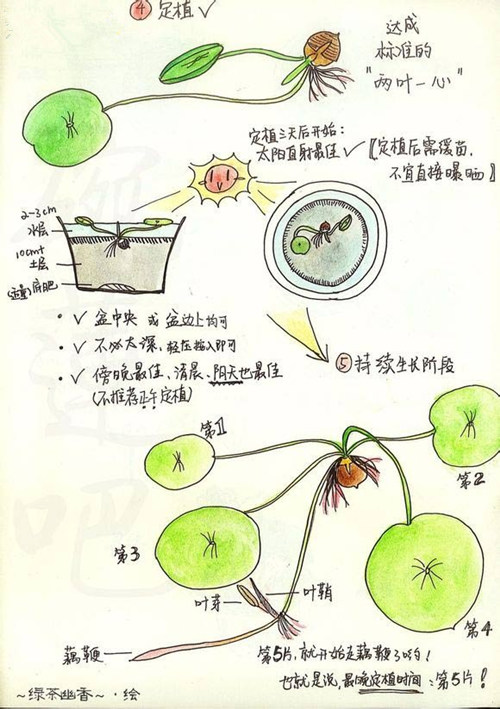 ④ 定植 ✓
达成
标准的
"两叶一心"
定植三天后开始:
太阳直射最佳 ✓
【定植后需缓苗,
不宜直接曝晒】
2-3cm
水层
10cm±
土层
底肥
• ✓ 盆中央 或 盆边上均可
• ✓ 不必太深,轻轻插入即可
• ✓ 傍晚最佳、清晨、阴天也最佳
(不推荐正午定植)
⑤ 持续生长阶段
第1
第2
第3
第4
叶芽
叶鞘
藕鞭
第5片,就开始走藕鞭了哟!
也就是说,最晚定植时间:第5片!
~绿茶幽香~·绘